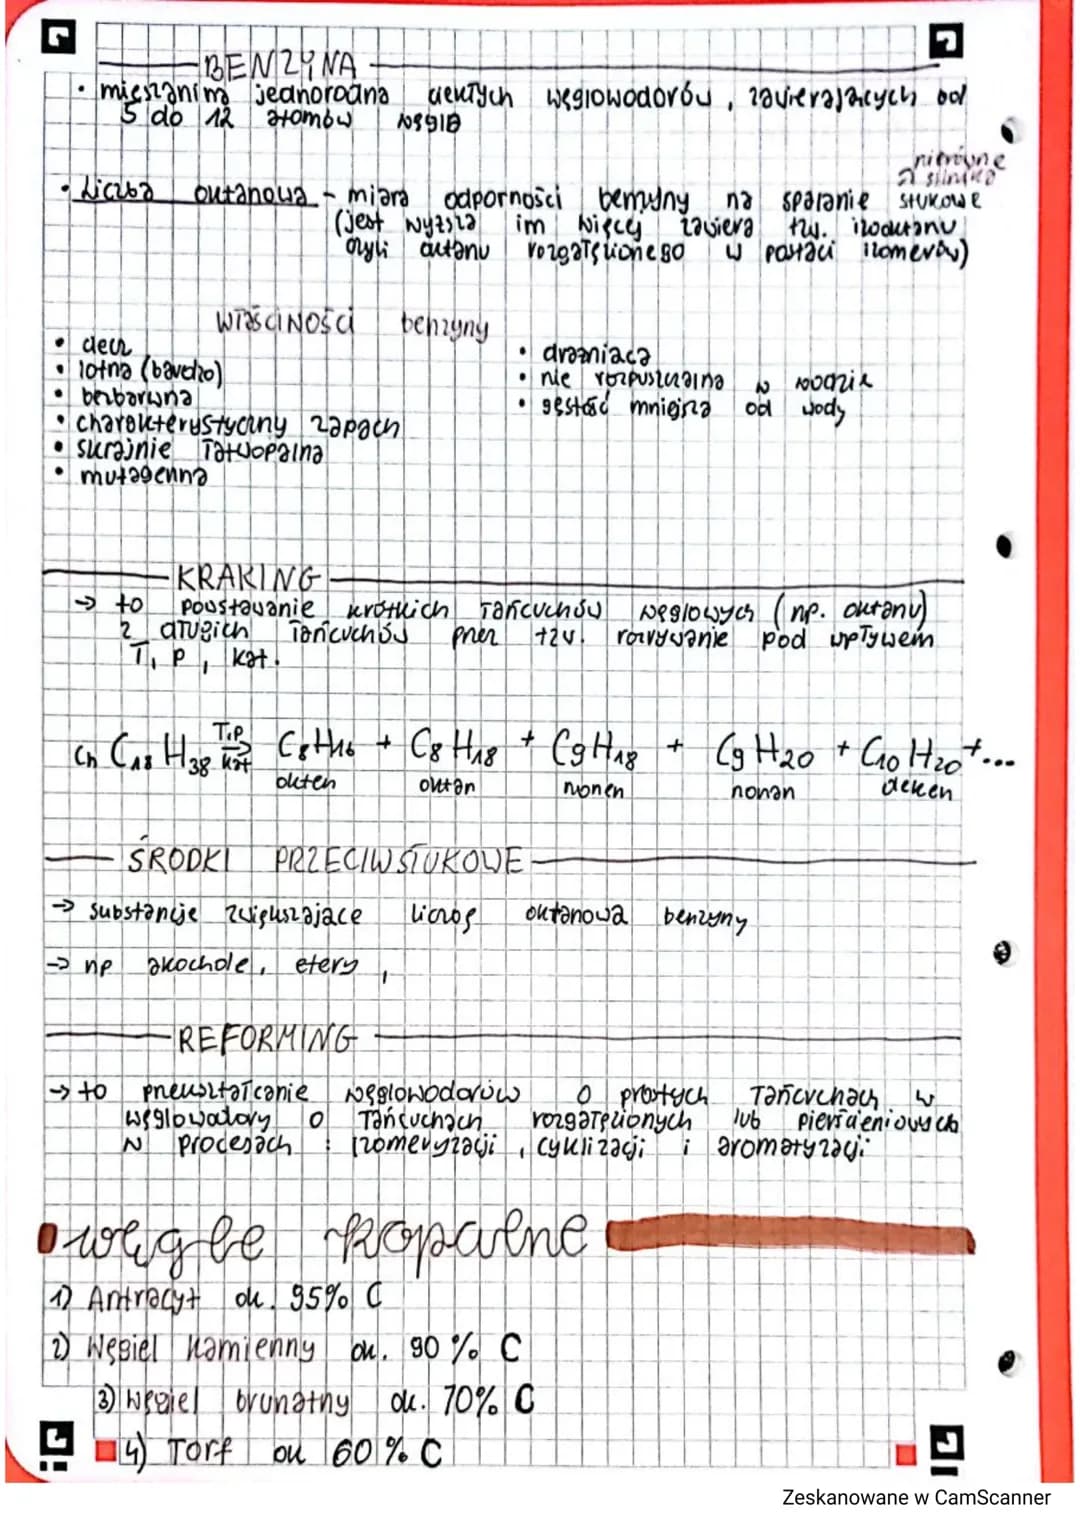 BENZYNA
• mieszanina jednorodna ciekłych węglowodorów, zawierających od
5 do 12 atomów węgla
nierówne
z silnika
• Liczba oktanowa - miara odporności benzyny na spalanie stukowe
(jest wyższa im więcej zawiera tzw. izooktanu
czyli oktanu rozgałęzionego w postaci izomerów)
właściwości benzyny
• ciecz
• lotna (bardzo)
• bezbarwna
• charakterystyczny zapach
• skrajnie łatwopalna
• mutagenna
• drażniąca
• nie rozpuszczalna w wodzie
• gęstość mniejsza od wody
KRAKING
→ to powstawanie krótkich łańcuchów węglowych (np. oktanu)
z długich łańcuchów przez tzw. rozrywanie pod wpływem
T, p, kat.
C₁₈H₃₈ T,p kat → C₈H₁₆ + C₈H₁₈ + C₉H₁₈ + C₉H₂₀ + C₁₀H₂₀ + ...
okten oktan nonen nonan deken
ŚRODKI PRZECIWSTUKOWE
→ substancje zwiększające liczbę oktanową benzyny
→ np akochole, etery,
REFORMING
→ to przekształcanie węglowodorów o prostych łańcuchach w
węglowodory o łańcuchach rozgałęzionych lub pierścieniowych
w procesach: izomeryzacji, cyklizacji i aromatyzacji
węgle kopalne
1) Antracyt ok. 95% C
2) Węgiel kamienny ok. 90% C
3) Węgiel brunatny ok. 70% C
4) Torf ok 60% C
Zeskanowane w CamScanner